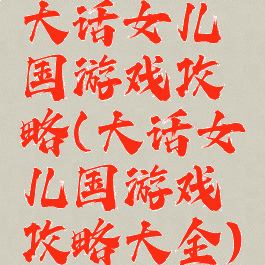 大话女儿
国游戏攻
略(大话女
儿国游戏
攻略大全)